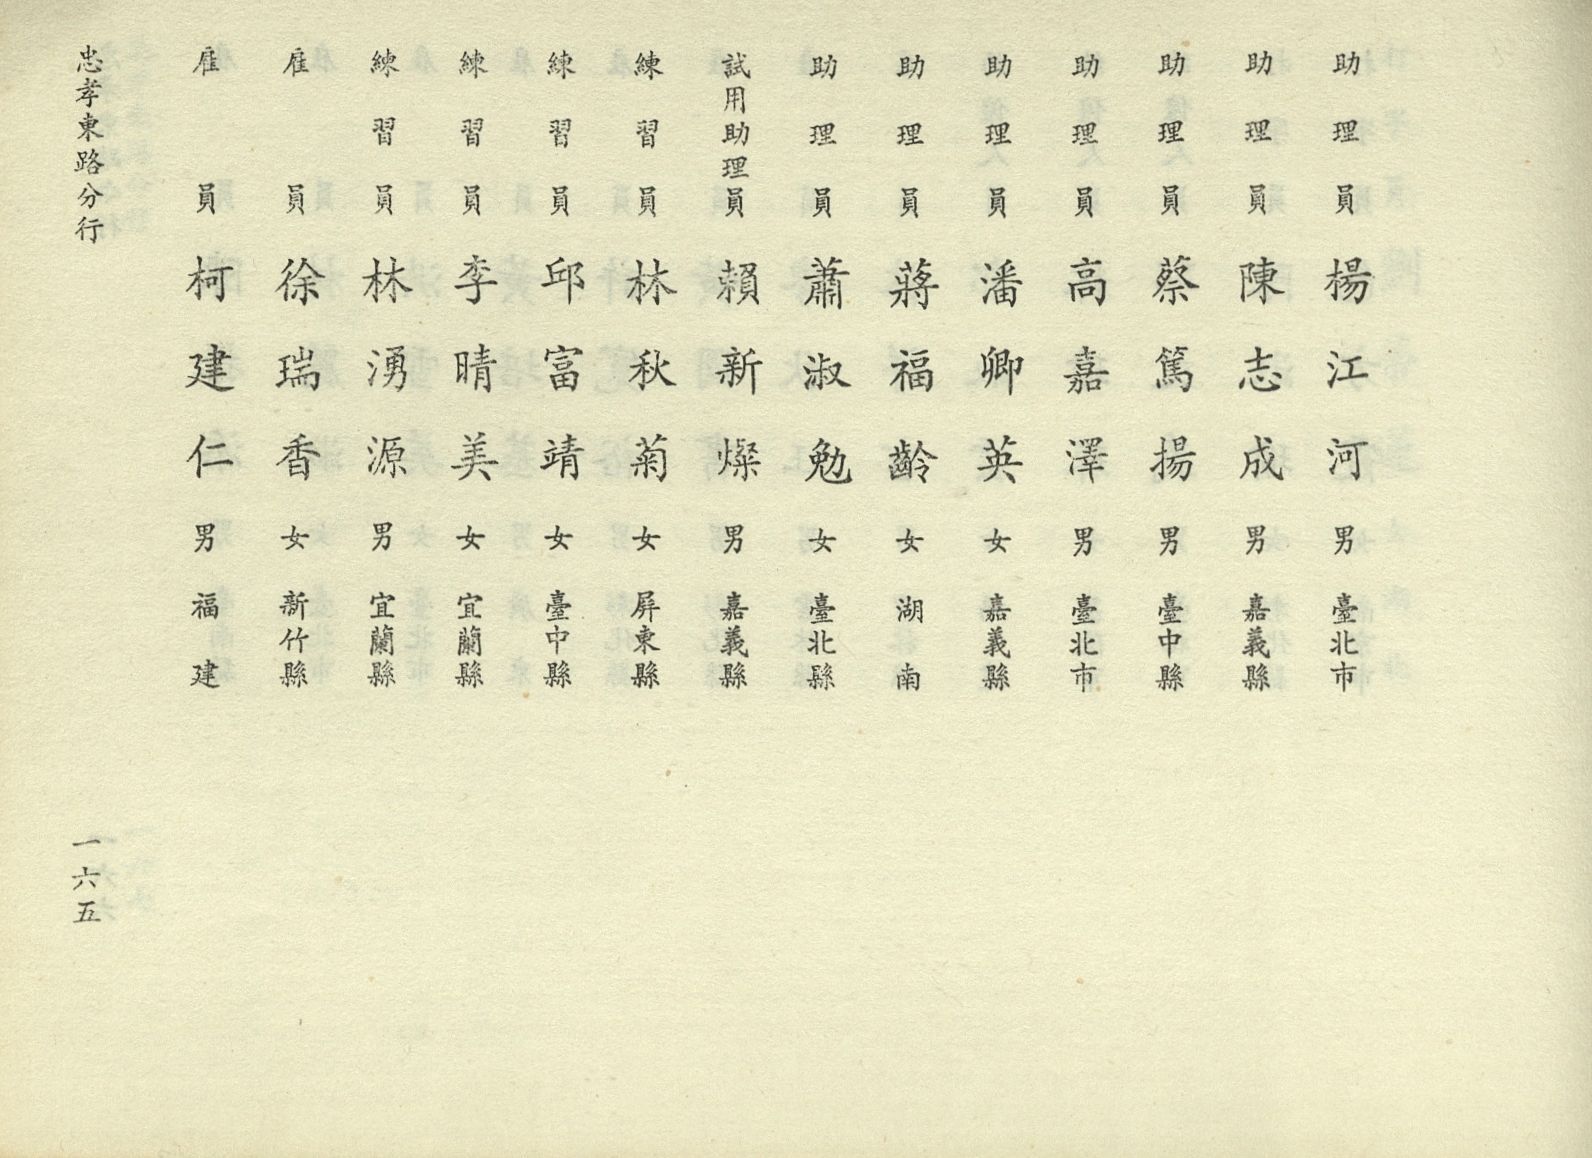 助理員 楊江河 男 臺北市
助理員 陳志成 男 嘉義縣
助理員 蔡篤揚 男 臺中縣
助理員 高嘉澤 男 臺北市
助理員 潘卿英 女 嘉義縣
助理員 蔣福齡 女 湖南
助理員 蕭淑勉 女 臺北縣
試用助理員 賴新燦 男 嘉義縣
練習員 林秋菊 女 屏東縣
練習員 邱富靖 女 臺中縣
練習員 李晴美 女 宜蘭縣
練習員 林湧源 男 宜蘭縣
雇員 徐瑞香 女 新竹縣
雇員 柯建仁 男 福建
忠孝東路分行
一六五